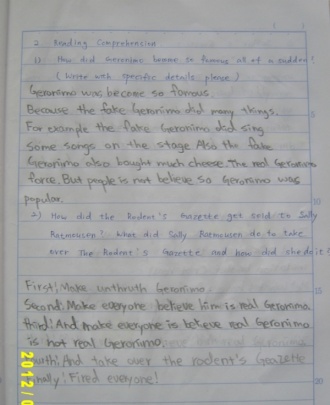 2. Reading Comprehension
1) How did Geronimo become so famous all of a sudden?
( Write with specific details please )
Geronimo was become so famous.
Because the fake Geronimo did many things.
For example the fake Geronimo did sing
some songs on the stage Also the fake
Geronimo also bought much cheese. The real Geronimo
force. But people is not believe so Geronimo was
popular.
2) How did the Rodent's Gazette get sold to Sally
Ratmousen? What did Sally Ratmousen do to take
over The Rodent's Gazette and how did she do it?
First! Make unthruth Geronimo.
Second! Make everyone believe him is real Geronimo
third! And make everyone is believe real Geronimo
is not real Geronimo.
ourth! And take over the rodent's Gazette
inally! Fired everyone!
2012/0
5
10
15
20